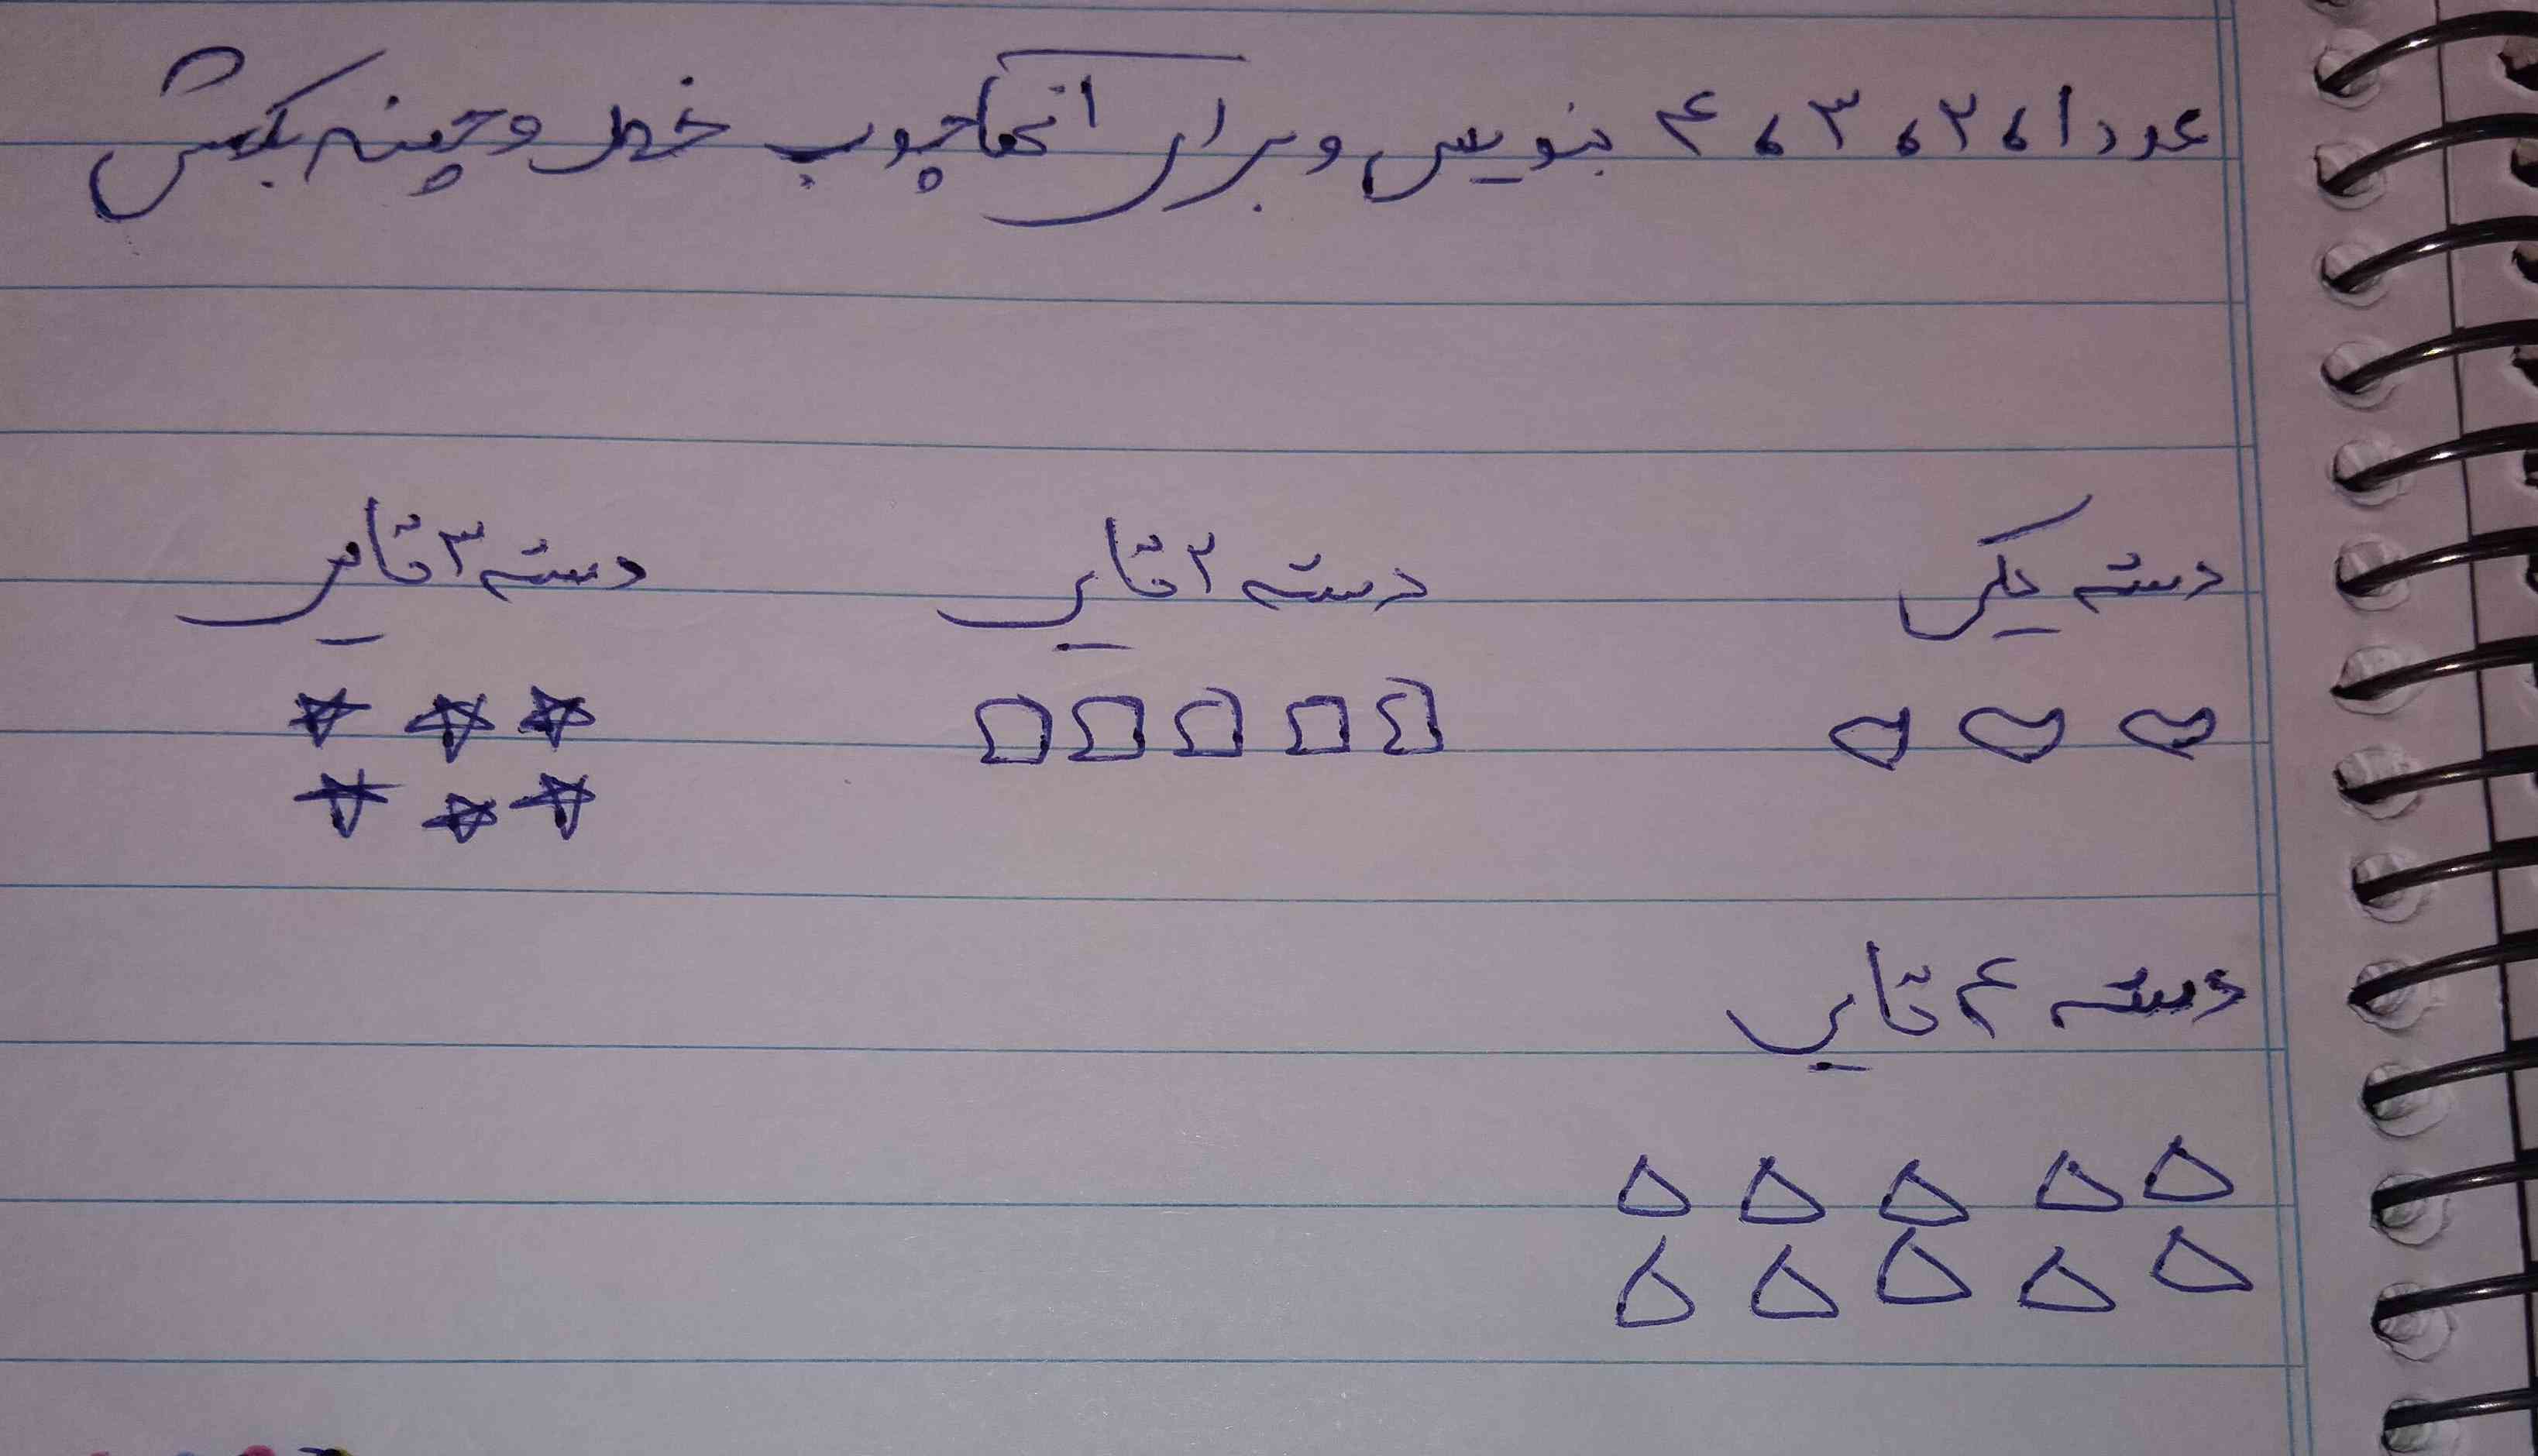 عدد ۱، ۲، ۳، ۴ بنویس و برای آنها چوب خط و چینه بکش
دسته یکی دسته ۲ تایی دسته ۳ تایی
دسته ۴ تایی